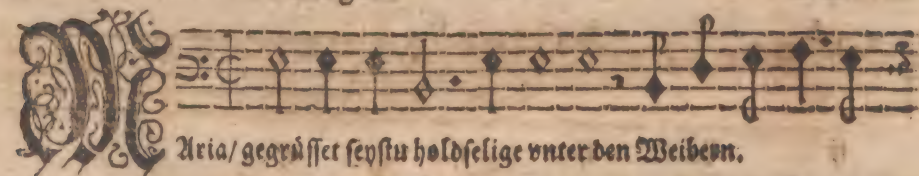 MAria/ gegrüsset seystu holdselige vnter den Weibern.